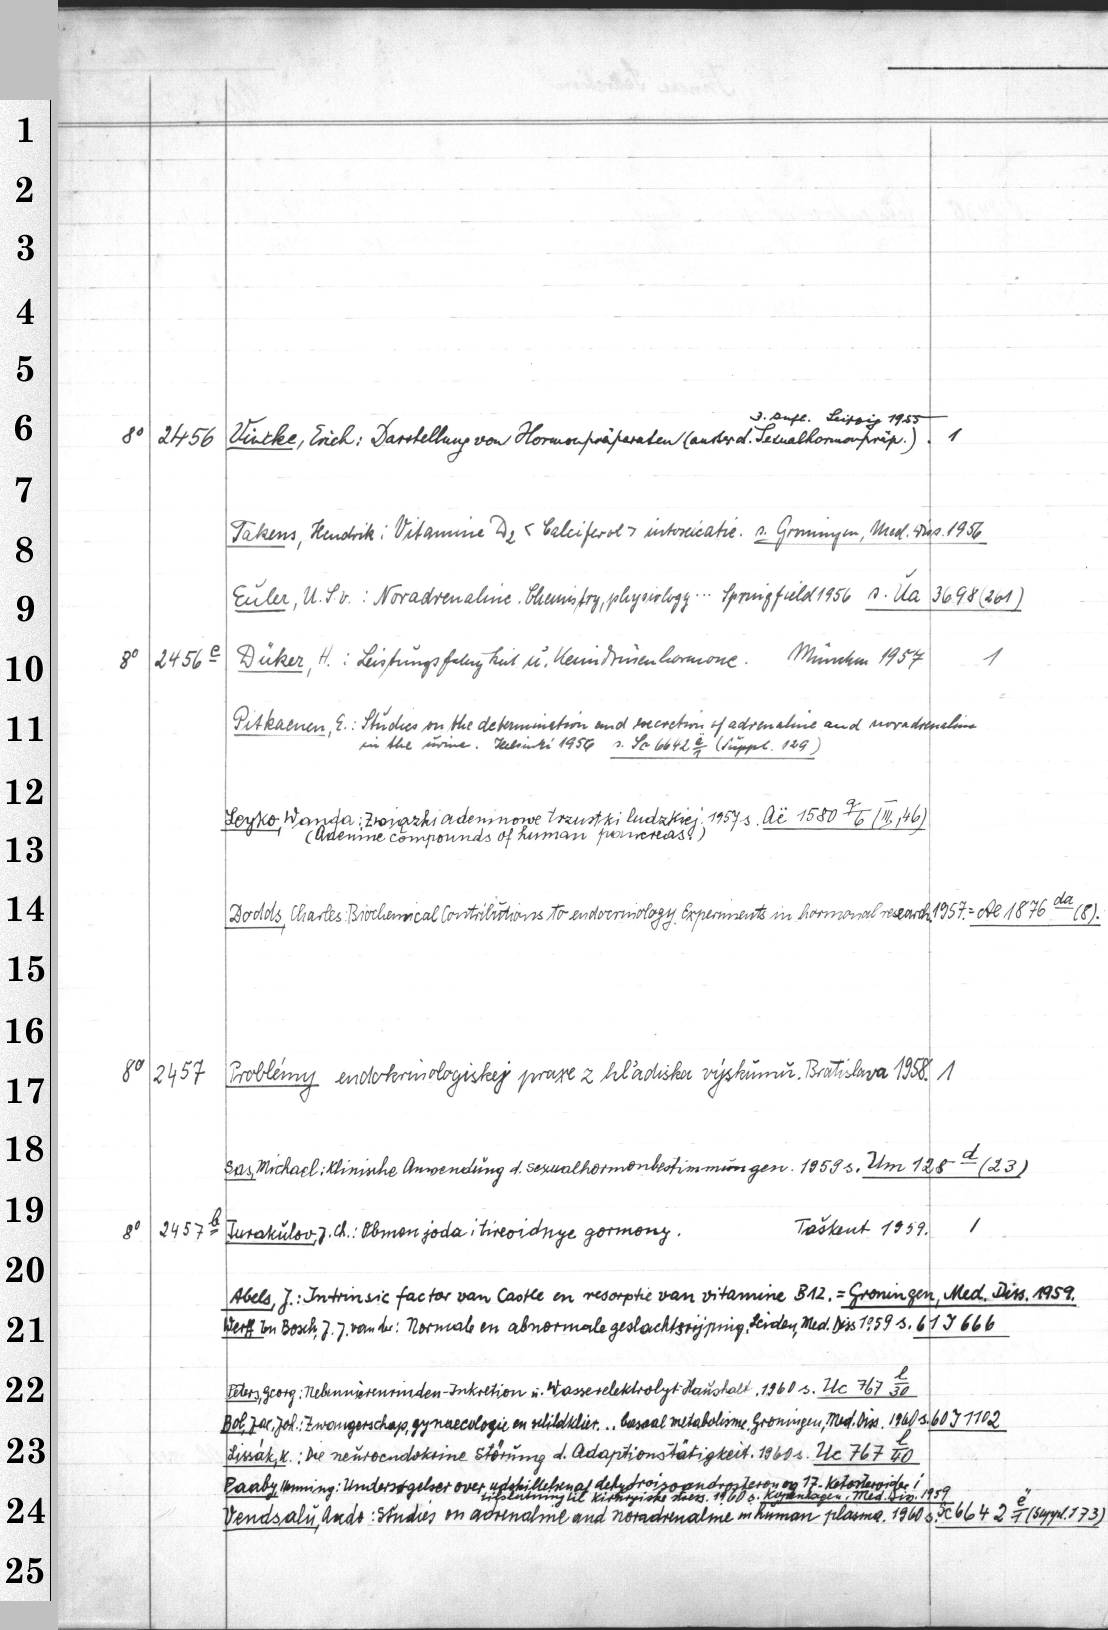 1
2
3
4
5
6
3. Aufl. Leipzig 1955
8° 2456 Vincke, Erich: Darstellung von Hormonpräparaten (außer d. Sexualhormonpräp.). 1
7
Takens, Hendrik: Vitamine D2 < Calciferol > intoxicatie. s. Groningen, Med. Diss. 1956
8
Euler, U.S.v.: Noradrenaline. Chemistry, physiology ... Springfield 1956 s. Ua 3698 (261)
9
8° 2456 e Düker, H.: Leistungsfähigkeit u. Keimdrüsenhormone. München 1957 1
10
Pitkaenen, E.: Studies on the determination and excretion of adrenaline and noradrenaline
11
in the urine. Helsinki 1956 s. Sc 6642 ë/1 (Suppl. 129)
12
Leyko, Wanda: Związki adeninowe trzustki ludzkiej. 1957 s. Aë 1580 q/6 (III, 46)
(Adenine compounds of human pancreas.)
13
14
Dodds, Charles: Biochemical Contributions to endocrinology. Experiments in hormonal research. 1957. = Ae 1876 da (8).
15
16
8° 2457 Problémy endokrinologiskej praxe z hľadiska výskumu. Bratislava 1958. 1
17
18
Sas, Michael: Klinische Anwendung d. Sexualhormonbestimmungen. 1959 s. Um 128 d (23)
19
8° 2457 b Turakulov, J. Ch.: Obmen joda i tireoidnye gormony. Taškent 1959. 1
20
Abels, J.: Intrinsic factor van Castle en resorptie van vitamine B12. = Groningen, Med. Diss. 1959.
21
Werff ten Bosch, J. J. van der: Normale en abnormale geslachtsrijping. Leiden, Med. Diss 1959 s. 61 J 666
22
Peters, Georg: Nebennierenrinden-Inkretion u. Wasserelektrolyt-Haushalt. 1960 s. Uc 767 l/30
Bol, Jac. Joh.: Zwangerschap, gynaecologie en schildklier... basaal metabolisme. Groningen, Med. Diss. 1960 s. 60 J 1102
23
Lissák, K.: Die neuroendokrine Störung d. Adaptionstätigkeit. 1960 s. Uc 767 l/40
Paaby, Henning: Undersøgelser over udskillelsen af dehydroisoandrosteron og 17-ketosteroider i
tilslutning til kirurgiske stress. 1960 s. Kopenhagen, Med. Diss. 1959
24
Vendsalu, Ando: Studies on adrenaline and noradrenaline in human plasma. 1960 s. Sc 6642 ë/1 (Suppl. 173)
25